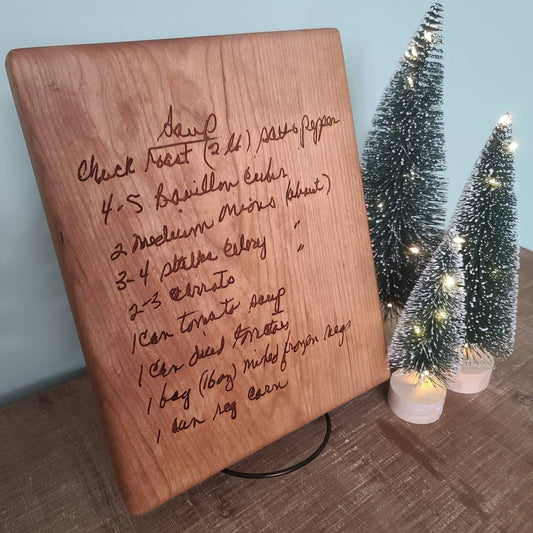 Soup
Chuck roast (2 lb) salt & pepper
4-5 Bouillon Cubes
2 Medium onions (about)
3-4 stalks Celery "
2-3 carrots "
1 Can tomato soup
1 Can diced tomatoes
1 bag (16oz) mixed frozen vegs
1 can reg corn